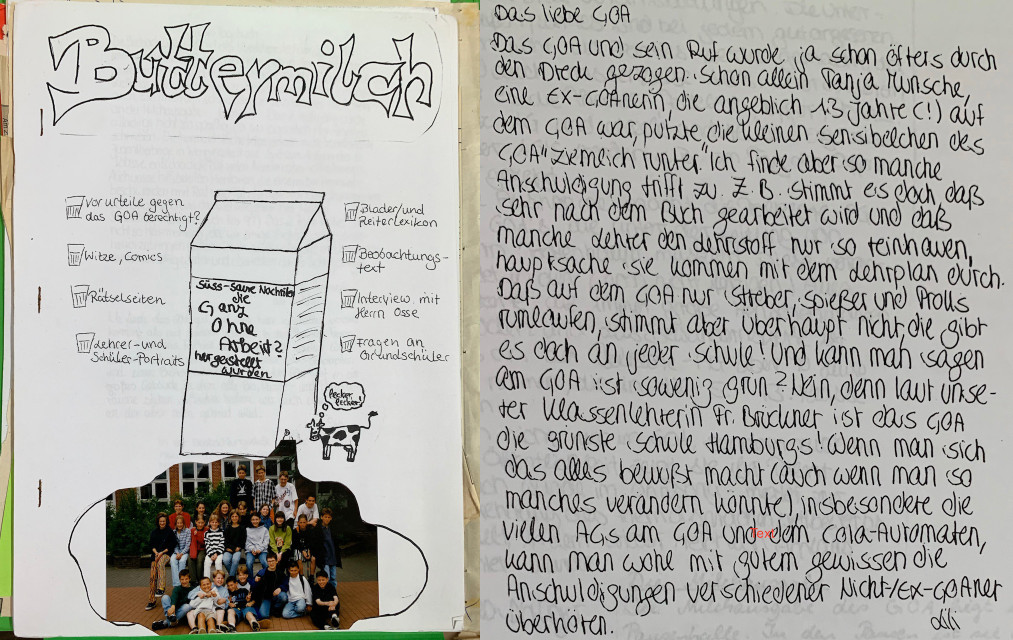 Buttermilch
Vorurteile gegen
das GOA berechtigt?
Witze, Comics
Rätselseiten
Lehrer- und
Schüler-Portraits
Süss-saure Nachrichten
die
Ganz
Ohne
Arbeit?
hergestellt
wurden
Blader/und
Reiterlexikon
Beobachtungs-
text
Interview mit
Herrn Osse
Fragen an
Grundschüler
lecker
lecker!
Das liebe GOA
Das GOA und sein Ruf wurde ja schon öfters durch
den Dreck gezogen. Schon allein Tanja
eine EX-GOAnerin, die angeblich 13 Jahre (!) auf
dem GOA war, putzte die kleinen Sensibelchen des
GOA "ziemlich runter". Ich finde aber so manche
Anschuldigung trifft zu. Z.B. stimmt es doch, daß
sehr nach dem Buch gearbeitet wird und daß
manche Lehrer den Lehrstoff nur so reinhauen,
hauptsache sie kommen mit dem Lehrplan durch.
Daß auf dem GOA nur Streber, Spießer und Prolls
rumlaufen, stimmt aber überhaupt nicht, die gibt
es doch an jeder Schule! Und kann man sagen
am GOA ist sowenig grün? Nein, denn laut unse-
rer Klassenlehrerin Fr. Brückner ist das GOA
die grünste Schule Hamburgs! Wenn man sich
das alles bewußt macht (auch wenn man so
manches verändern könnte), insbesondere die
vielen AGs am GOA und dem Cola-Automaten,
Text
kann man wohl mit gutem gewissen die
Anschuldigungen verschiedener Nicht-/EX-GOAner
überhören.